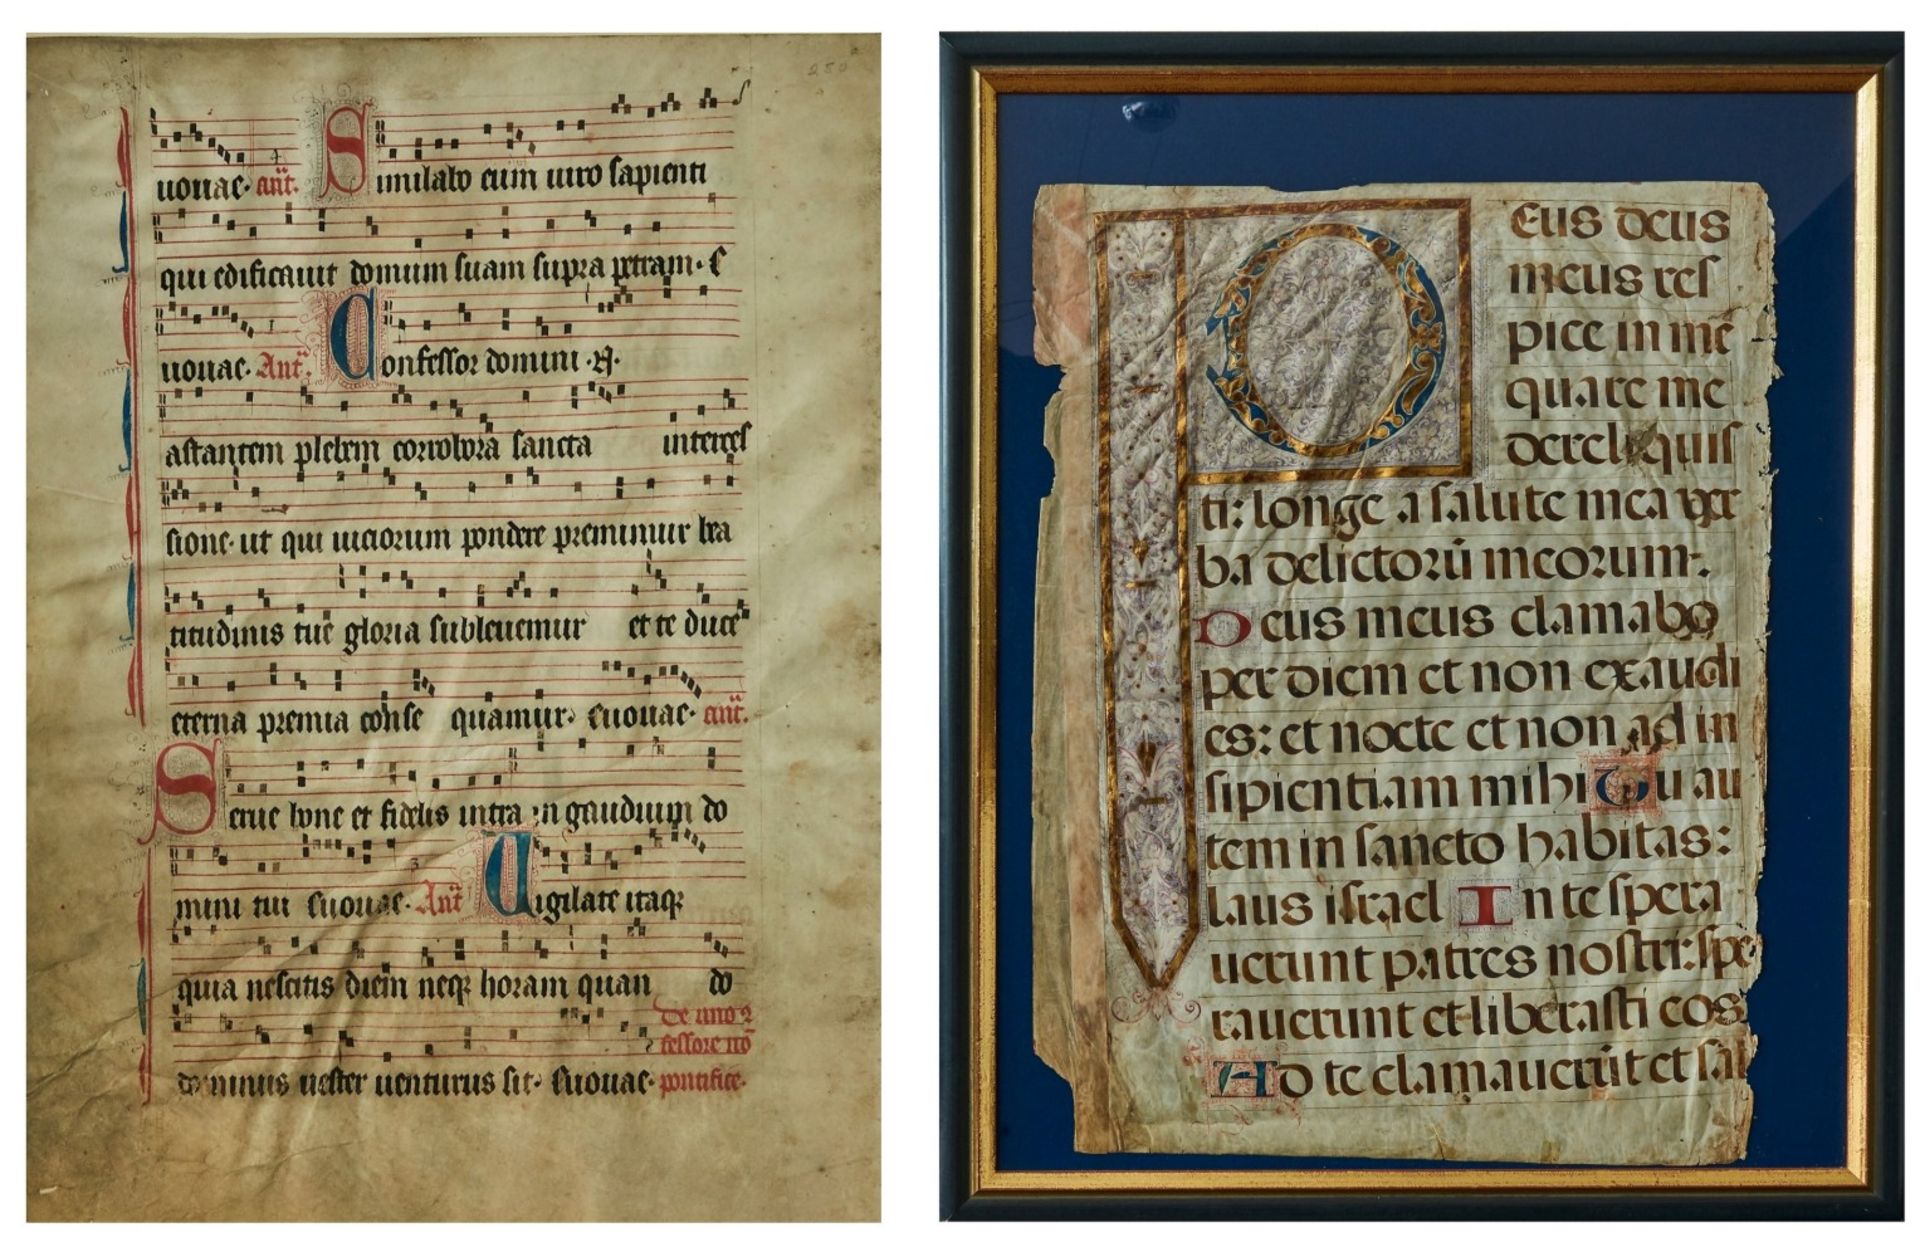 250
uouae. añt. Similabo eum uiro sapienti
qui edificauit domum suam supra petram. E
uouae. Ant. Confessor domini .N.
astantem plebem corrobora sancta interces
sione. ut qui uiciorum pondere premimur bea
titudinis tue gloria subleuemur et te duce
eterna premia conse quamur. Euouae. añt.
Serue bone et fidelis intra in gaudium do
mini tui Euouae. Ant Uigilate itaq
quia nescitis diem neq horam quan do
De uno 2
fessore nō
dominus uester uenturus sit. Euouae. pontifice.
DEus deus
meus res
pice in me
quare me
dereliquis
ti: longe a salute mea ver
ba delictorū meorum.
Deus meus clamabo
per diem et non exaudi
es: et nocte et non ad in
sipientiam mihi Tu au
tem in sancto habitas:
laus israel In te spera
uerunt patres nostri: spe
rauerunt et liberasti eos
Ad te clamauerūt et sal